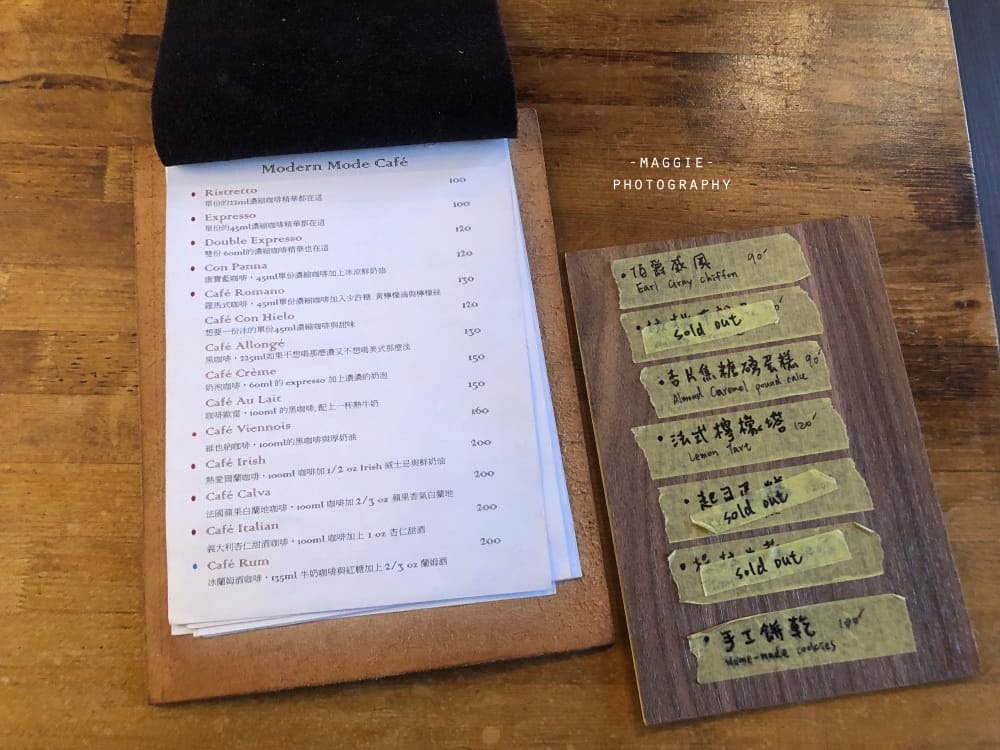 Modern Mode Café
Ristretto 100
單份的22ml濃縮咖啡精華都在這
Expresso 100
單份的45ml濃縮咖啡精華都在這
Double Expresso 120
雙份 60ml的濃縮咖啡精華也在這
Con Panna 120
康寶藍咖啡，45ml單份濃縮咖啡加上冰涼鮮奶油
Café Romano 130
羅馬式咖啡，45ml單份濃縮咖啡加入少許糖, 黃檸檬油與檸檬絲
Café Con Hielo 120
想要一份冰的單份45ml濃縮咖啡與甜味
Café Allongé 130
黑咖啡，225ml如果不想喝那麼濃又不想喝美式那麼淺
Café Crème 150
奶泡咖啡，60ml 的 expresso 加上濃濃的奶泡
Café Au Lait 150
咖啡歐蕾，100ml 的黑咖啡, 配上一杯熱牛奶
Café Viennois 160
維也納咖啡，100ml的黑咖啡與厚奶油
Café Irish 200
熱愛爾蘭咖啡，100ml 咖啡加 1/2 oz Irish 威士忌與鮮奶油
Café Calva 200
法國蘋果白蘭地咖啡，100ml 咖啡加 2/3 oz 蘋果香氣白蘭地
Café Italian 200
義大利杏仁甜酒咖啡，100ml 咖啡加上 1 oz 杏仁甜酒
Café Rum 200
冰蘭姆酒咖啡，135ml 牛奶咖啡與紅糖加上 2/3 oz 蘭姆酒
-MAGGIE-
PHOTOGRAPHY
伯爵戚風 90
Earl Gray chiffon
sold out
杏片焦糖磅蛋糕 90
Almond Caramel pound cake
法式檸檬塔 120
Lemon Tart
sold out
sold out
手工餅乾 100
Home-made cookies